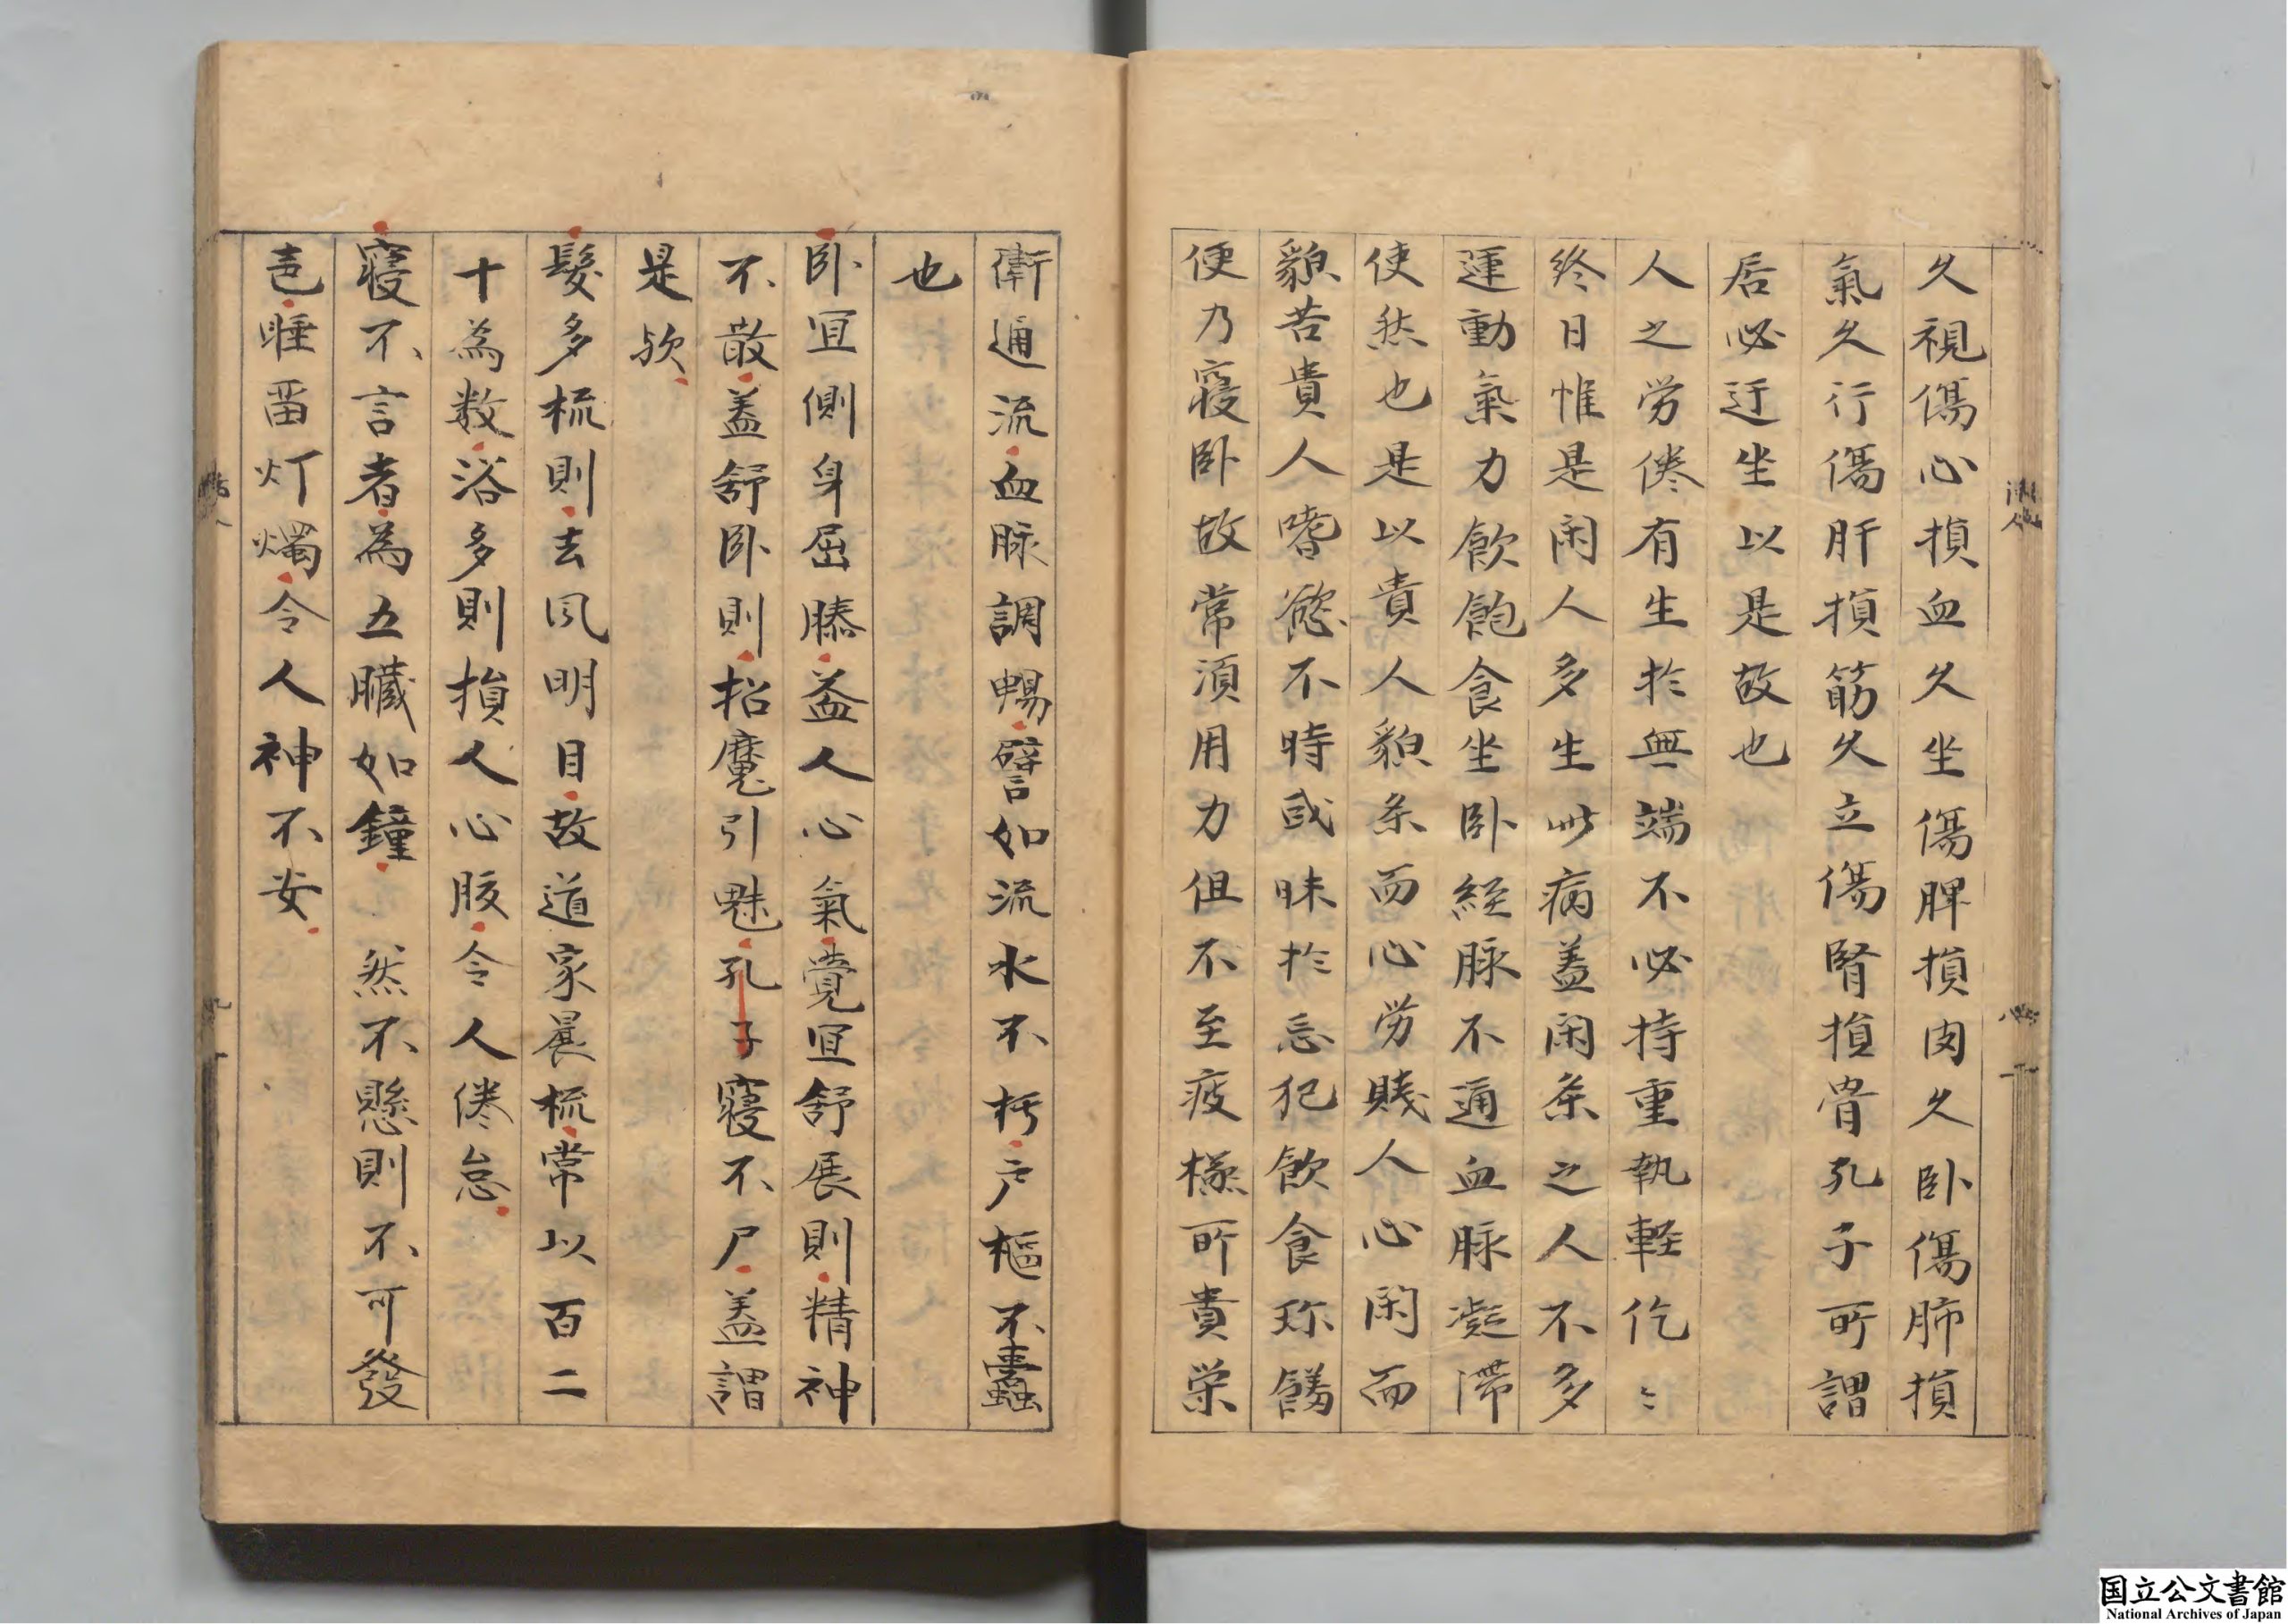 久視傷心損血久坐傷脾損肉久卧傷肺損
氣久行傷肝損筋久立傷腎損骨孔子所謂
居必迁坐以是故也
人之労倦有生於無端不必持重執軽仡〻
終日惟是闲人多生此病盖闲楽之人不多
運動氣力飲飽食坐卧経脉不通血脉凝滞
使然也是以貴人貌楽而心労賤人心闲而
貌苦貴人嗜慾不時或昧於忌犯飲食珎饈
便乃寝卧故常須用力但不至疲極所貴栄
衛通流血脉調暢譬如流水不朽戸樞不蠹
也
卧宜側身屈膝益人心氣覺宜舒展則精神
不散盖舒卧則招魔引魅孔子寝不尸盖謂
是欤
髮多梳則去风明目故道家晨梳常以百二
十為数浴多則損人心腹令人倦怠
寝不言者為五臓如鐘 然不懸則不可發
声睡畄灯燭令人神不安
国立公文書館
National Archives of Japan